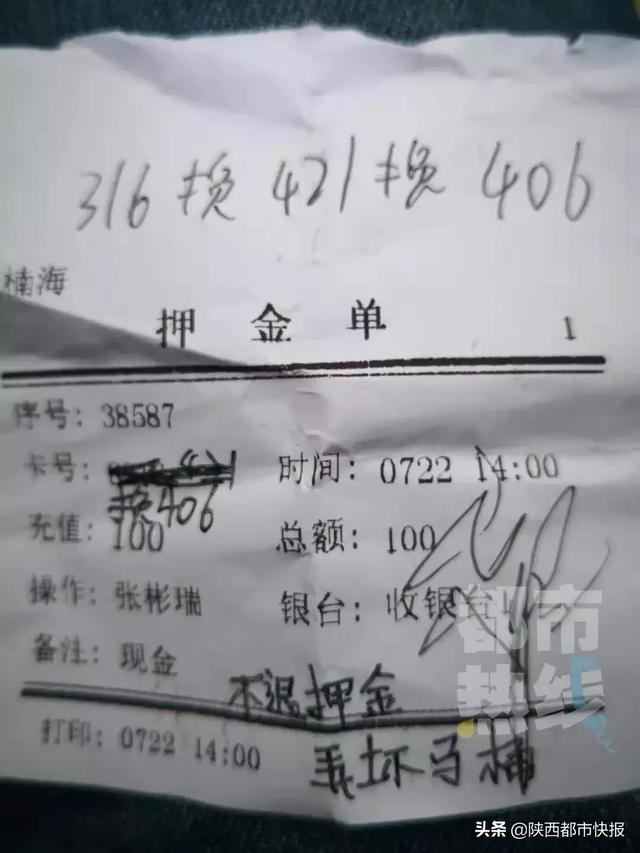 316换421换406
楠海
押金单 1
序号: 38587
卡号: 时间: 0722 14:00
换406
充值: 100 总额: 100
操作: 张彬瑞 银台: 收银台1
备注: 现金
不退押金
打印: 0722 14:00
弄坏马桶
都市
热线
头条 @陕西都市快报